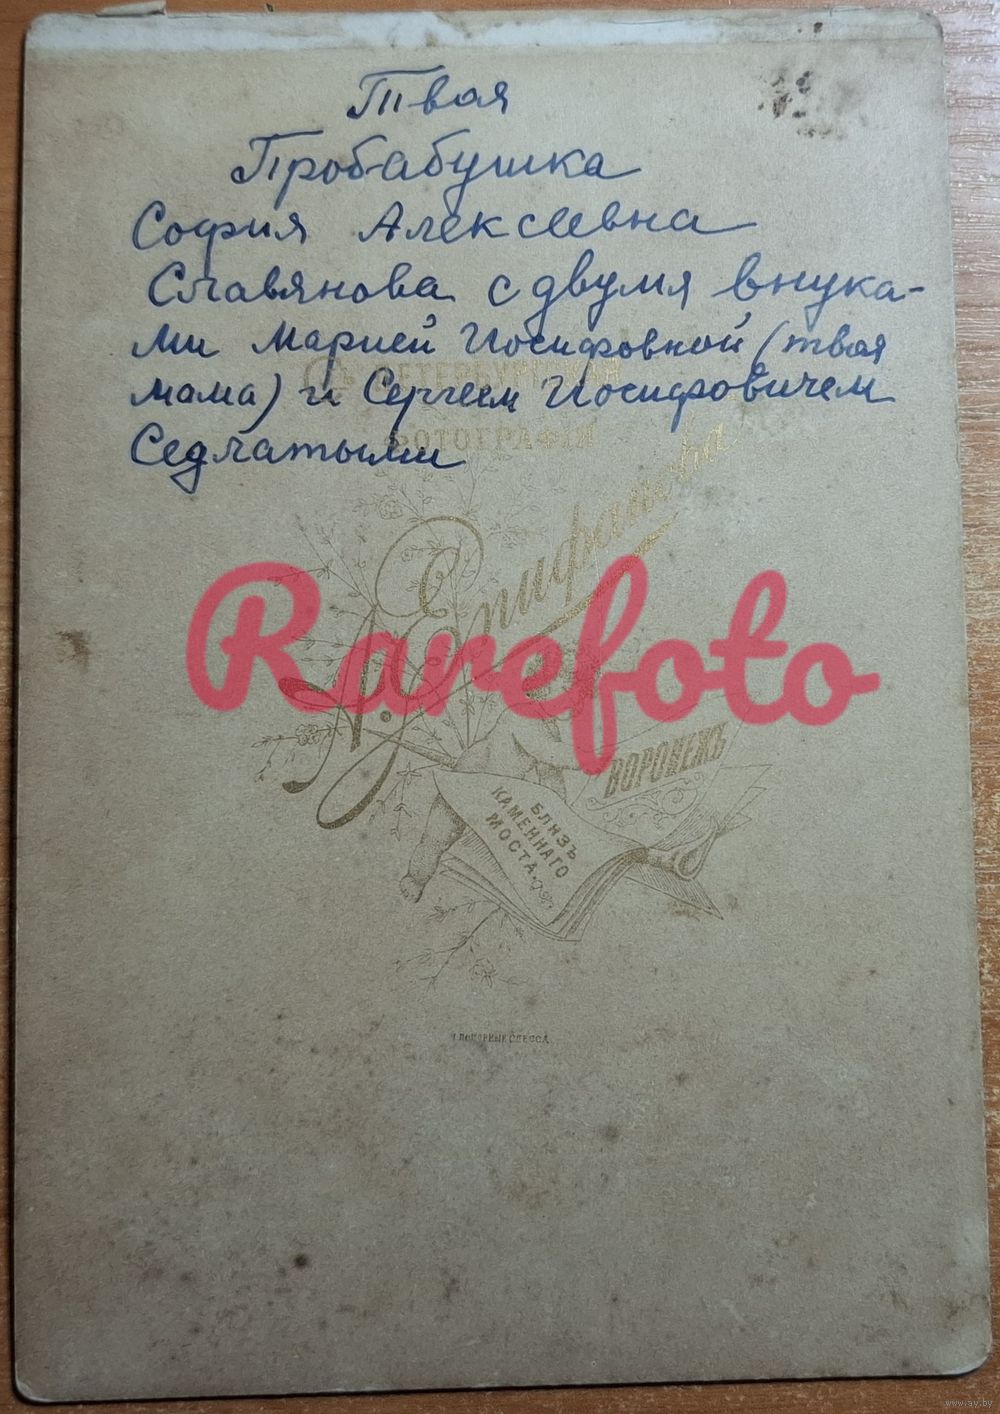 Твоя
Пробабушка
София Алексеевна
Славянова с двумя внука-
ми Марией Иосифовной (твоя
мама) и Сергеем Иосифовичем
Седлатыми
С. ПЕТЕРБУРГСКАЯ
ФОТОГРАФІЯ
А. Епифанова
Rarefoto
ВОРОНЕЖЪ
БЛИЗЪ
КАМЕННАГО
МОСТА
ОДЕССА
www.ay.by